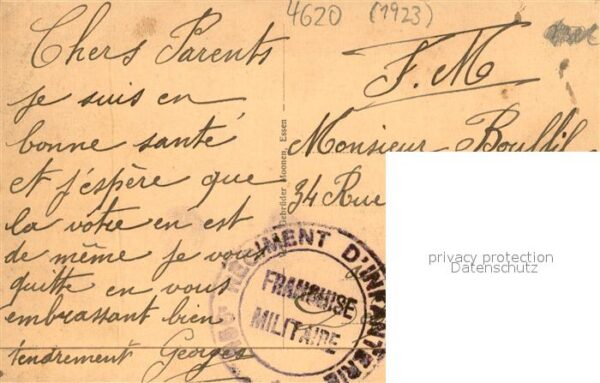 4620 (1923)
Chers Parents
je suis en
bonne santé
et j'espère que
la vôtre en est
de même je vous
quitte en vous
embrassant bien
tendrement Georges
Gebrüder Moonen, Essen
F. M
Monsieur
34 Rue
REGIMENT D'INFANTERIE
FRANCHISE
MILITAIRE
privacy protection
Datenschutz